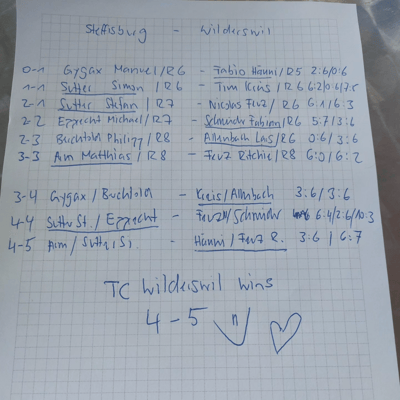 Steffisburg - Wilderswil
0-1 Gygax Manuel/R6 - Fabio Hänni/R5 2:6/0:6
1-1 Sutter Simon /R6 - Tim Kreis /R6 6:2/0:4/7:5
2-1 Sutter Stefan/R7 - Nicolas Feuz/R6 6:1/6:3
2-2 Epprecht Michael/R7 - Schmider Fabian/R6 5:7/3:6
2-3 Buchtold Philipp/R8 - Allenbach Lars/R6 0:6/3:6
3-3 Aim Matthias/R8 - Feuz Ritchie/R8 6:0/6:2
3-4 Gygax/Buchtold - Kreis/Allenbach 3:6/3:6
4-4 Sutter St./Epprecht - Feuz N/Schmider 6:4/2:6/10:3
4-5 Aim/Sutter Si. - Hänni/Feuz R. 3:6/6:7
TC Wilderswil wins
4-5